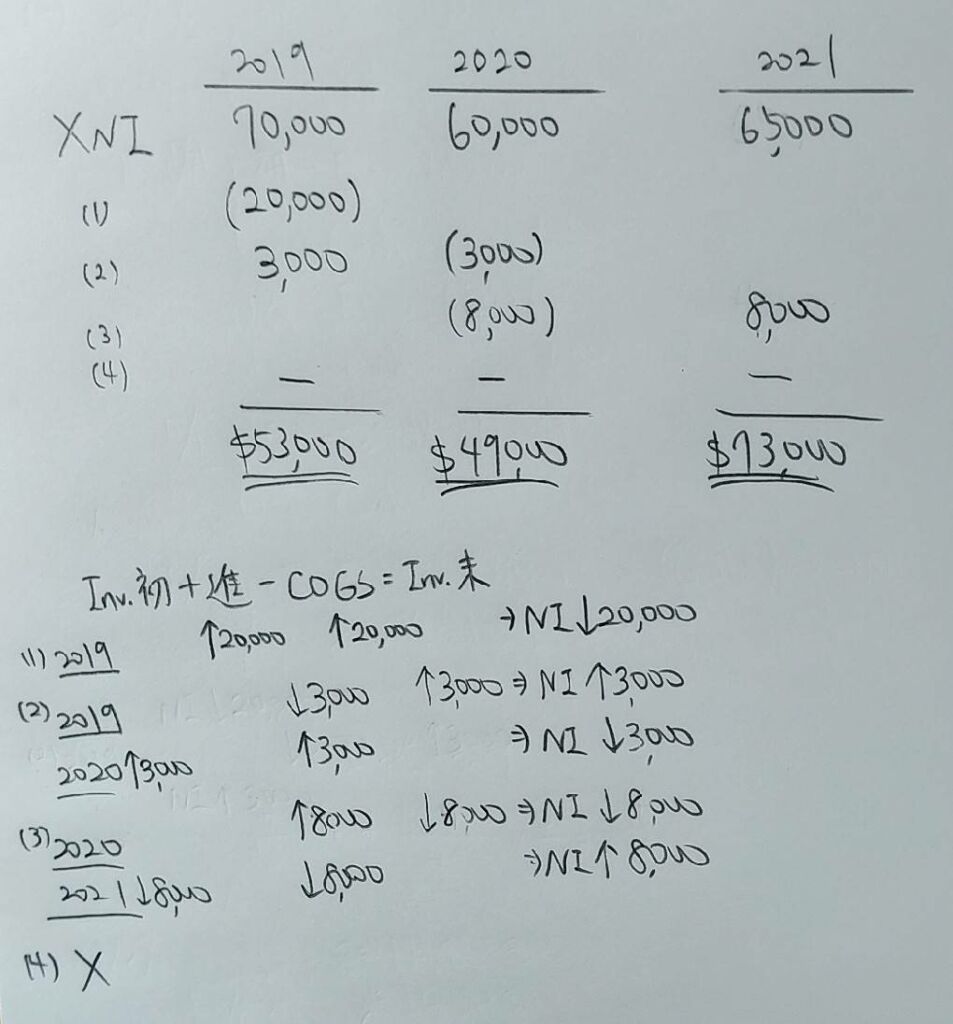 2019 2020 2021
XNI 70,000 60,000 65,000
(1) (20,000)
(2) 3,000 (3,000)
(3) (8,000) 8,000
(4) — — —
$53,000 $49,000 $73,000
Inv.初+進-COGS=Inv.末
(1) 2019 ↑20,000 ↑20,000 ⇒NI↓20,000
(2) 2019 ↓3,000 ↑3,000⇒NI↑3,000
2020↑3,000 ↑3,000 ⇒NI↓3,000
(3) 2020 ↑8,000 ↓8,000⇒NI↓8,000
2021↓8,000 ↓8,000 ⇒NI↑8,000
(4) X